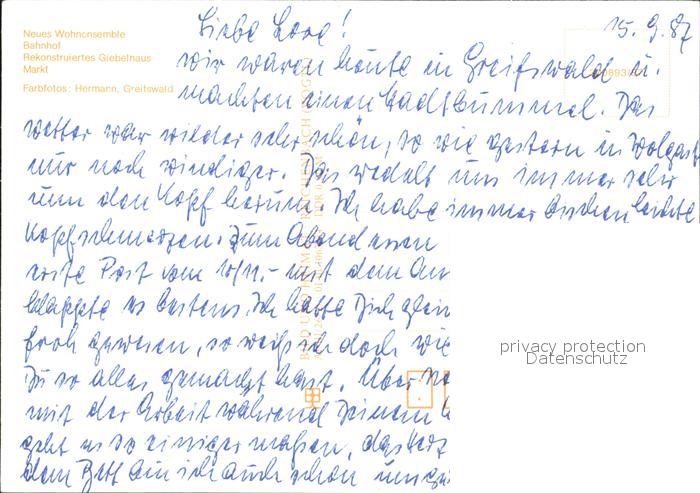 Neues Wohnensemble
Bahnhof
Rekonstruiertes Giebelhaus
Markt
Farbfotos: Hermann, Greifswald
15. 9. 87
Liebe Lore!
wir waren heute in Greifswald u.
machten einen Stadtbummel. Das
Wetter war wieder sehr schön, so wie gestern in Wolgast
nur noch windiger. Das wedelt uns immer sehr
um den Kopf herum. Ich habe immer bischen leichte
Kopfschmerzen. Zum Abend
erste Post vom mit dem
klappte es bestens. Ich hatte Dich
froh gewesen, so weiß ich doch wie
Du so alles gemacht hast. Über
mit der Arbeit während Deinem
geht es so einigermaßen, das
dem Bett bin ich auch schon
privacy protection
Datenschutz